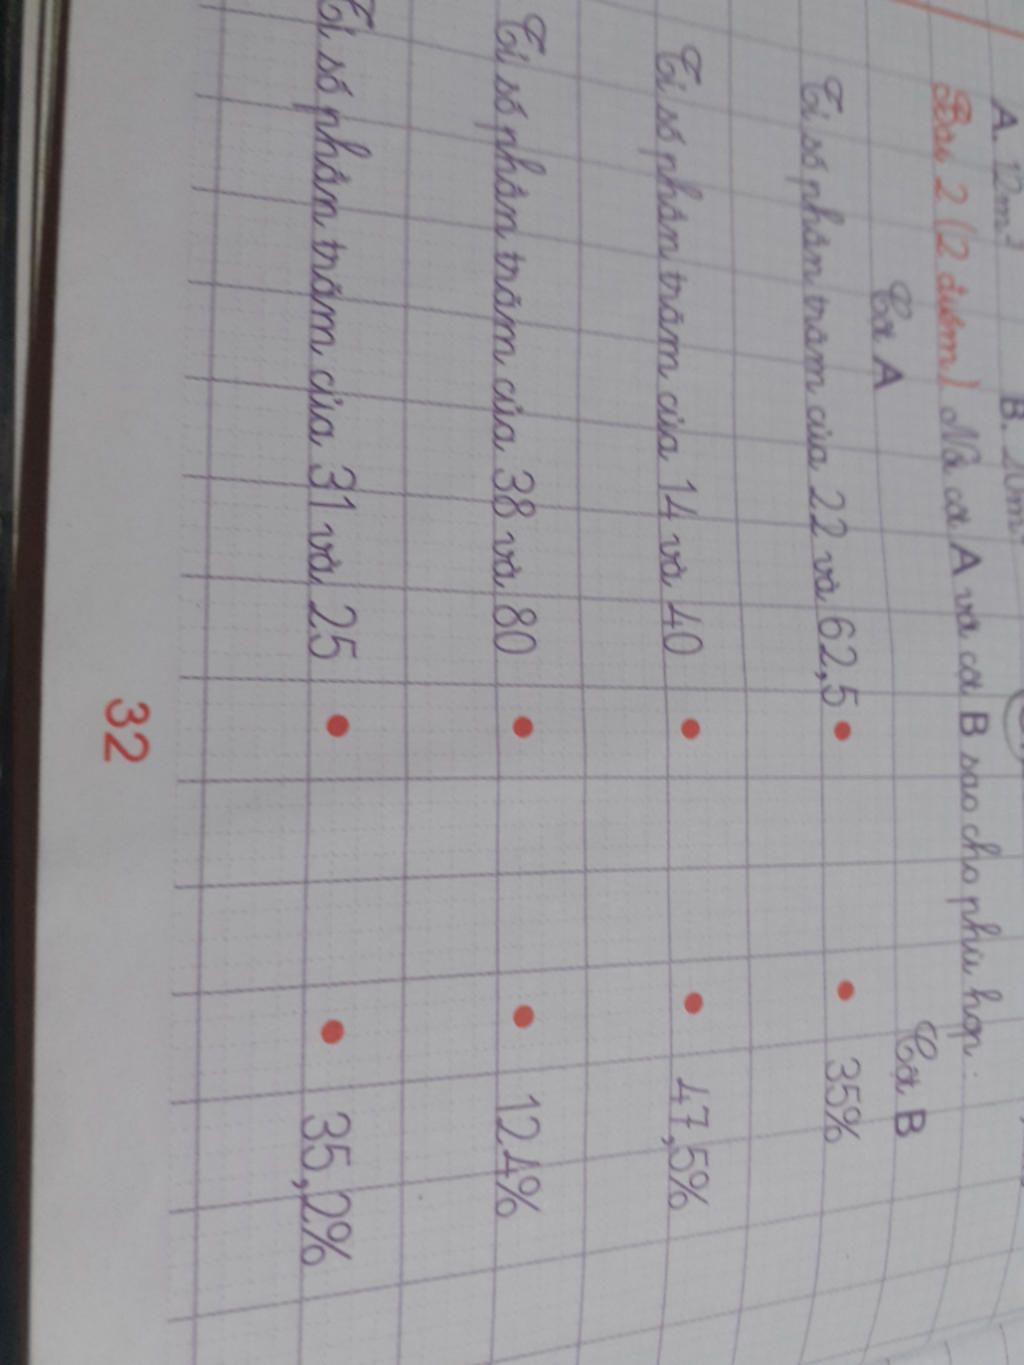 A. 12m³ B. 20m³
Bài 2 (2 điểm) Nối cột A và cột B sao cho phù hợp.
Cột A Cột B
Tỉ số phần trăm của 22 và 62,5 • • 35%
Tỉ số phần trăm của 14 và 40 • • 47,5%
Tỉ số phần trăm của 38 và 80 • • 124%
Tỉ số phần trăm của 31 và 25 • • 35,2%
32